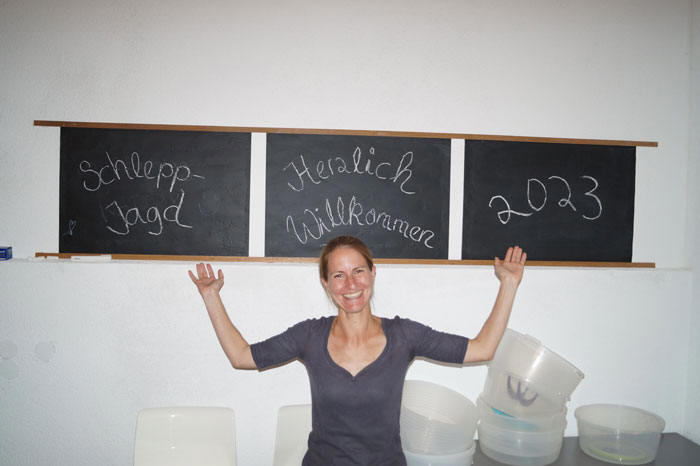 Schlepp-
Jagd
Herzlich
Willkommen
2023